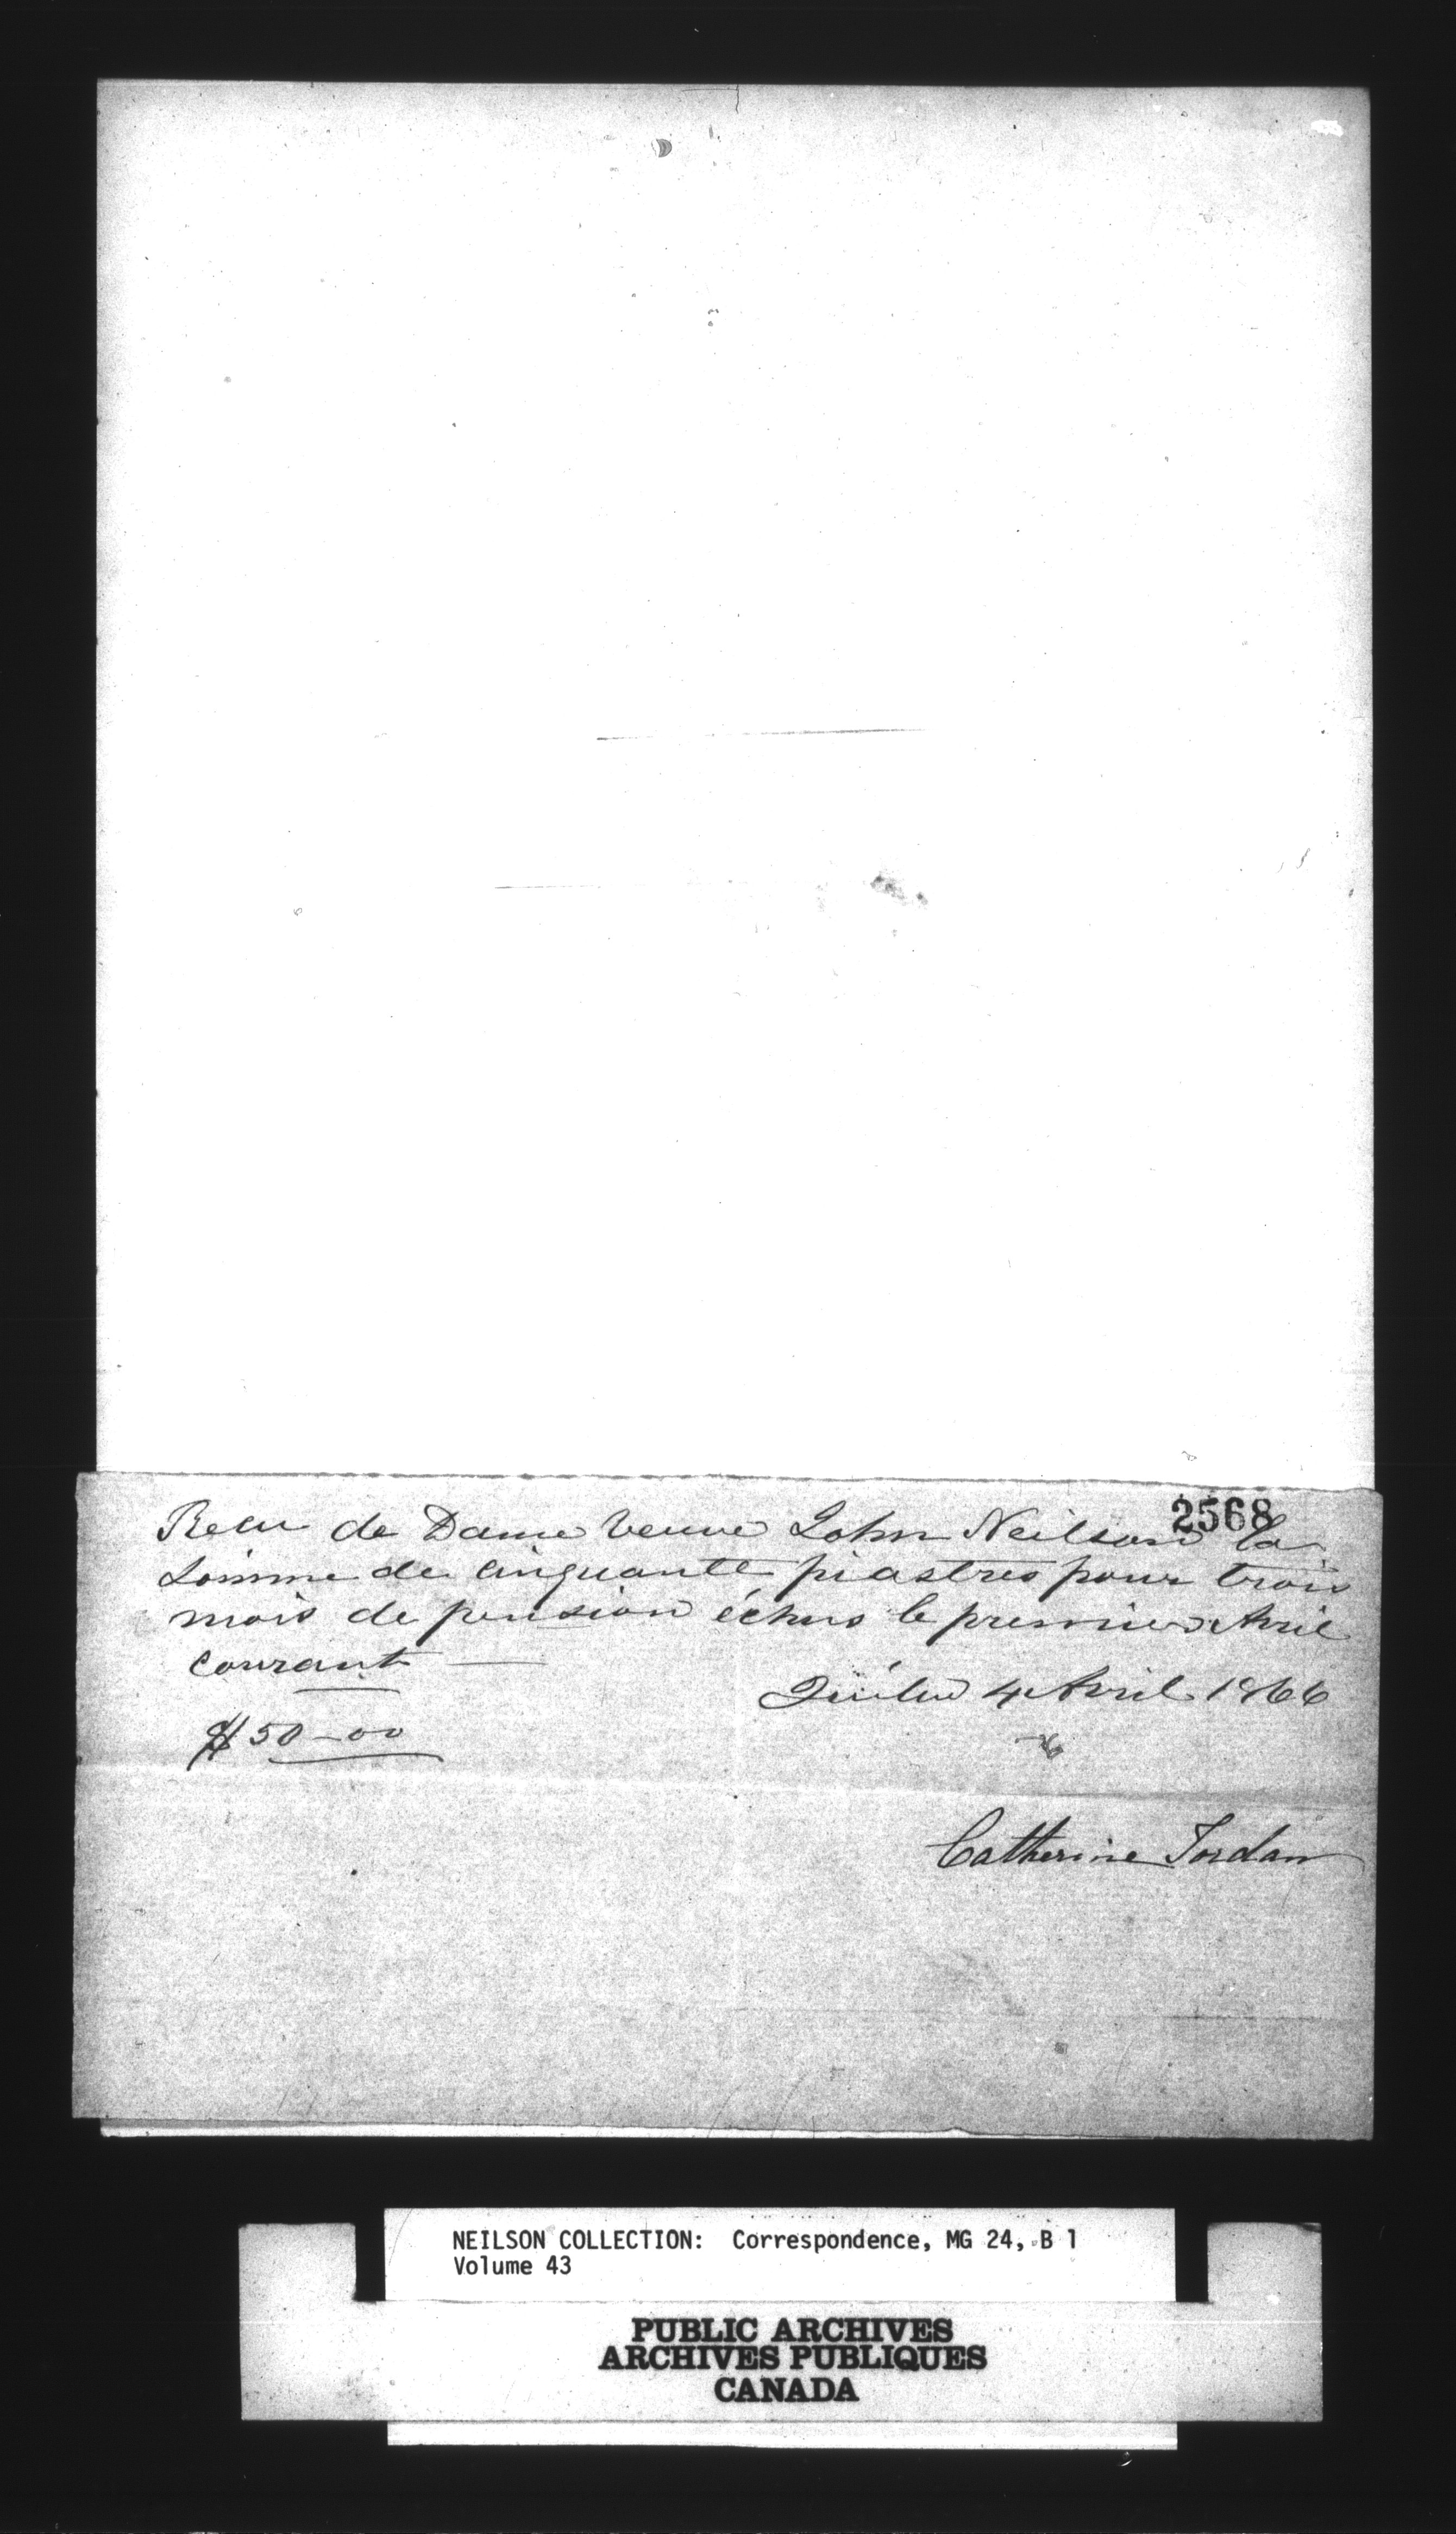 2568
Recu de Dame Veuve John Neilson la
Somme de cinquante piastres pour trois
mois de pension échus le premier Avril
courant —
Québec 4 Avril 1866
$50-00
Catherine Jordan
NEILSON COLLECTION: Correspondence, MG 24, B 1
Volume 43
PUBLIC ARCHIVES
ARCHIVES PUBLIQUES
CANADA